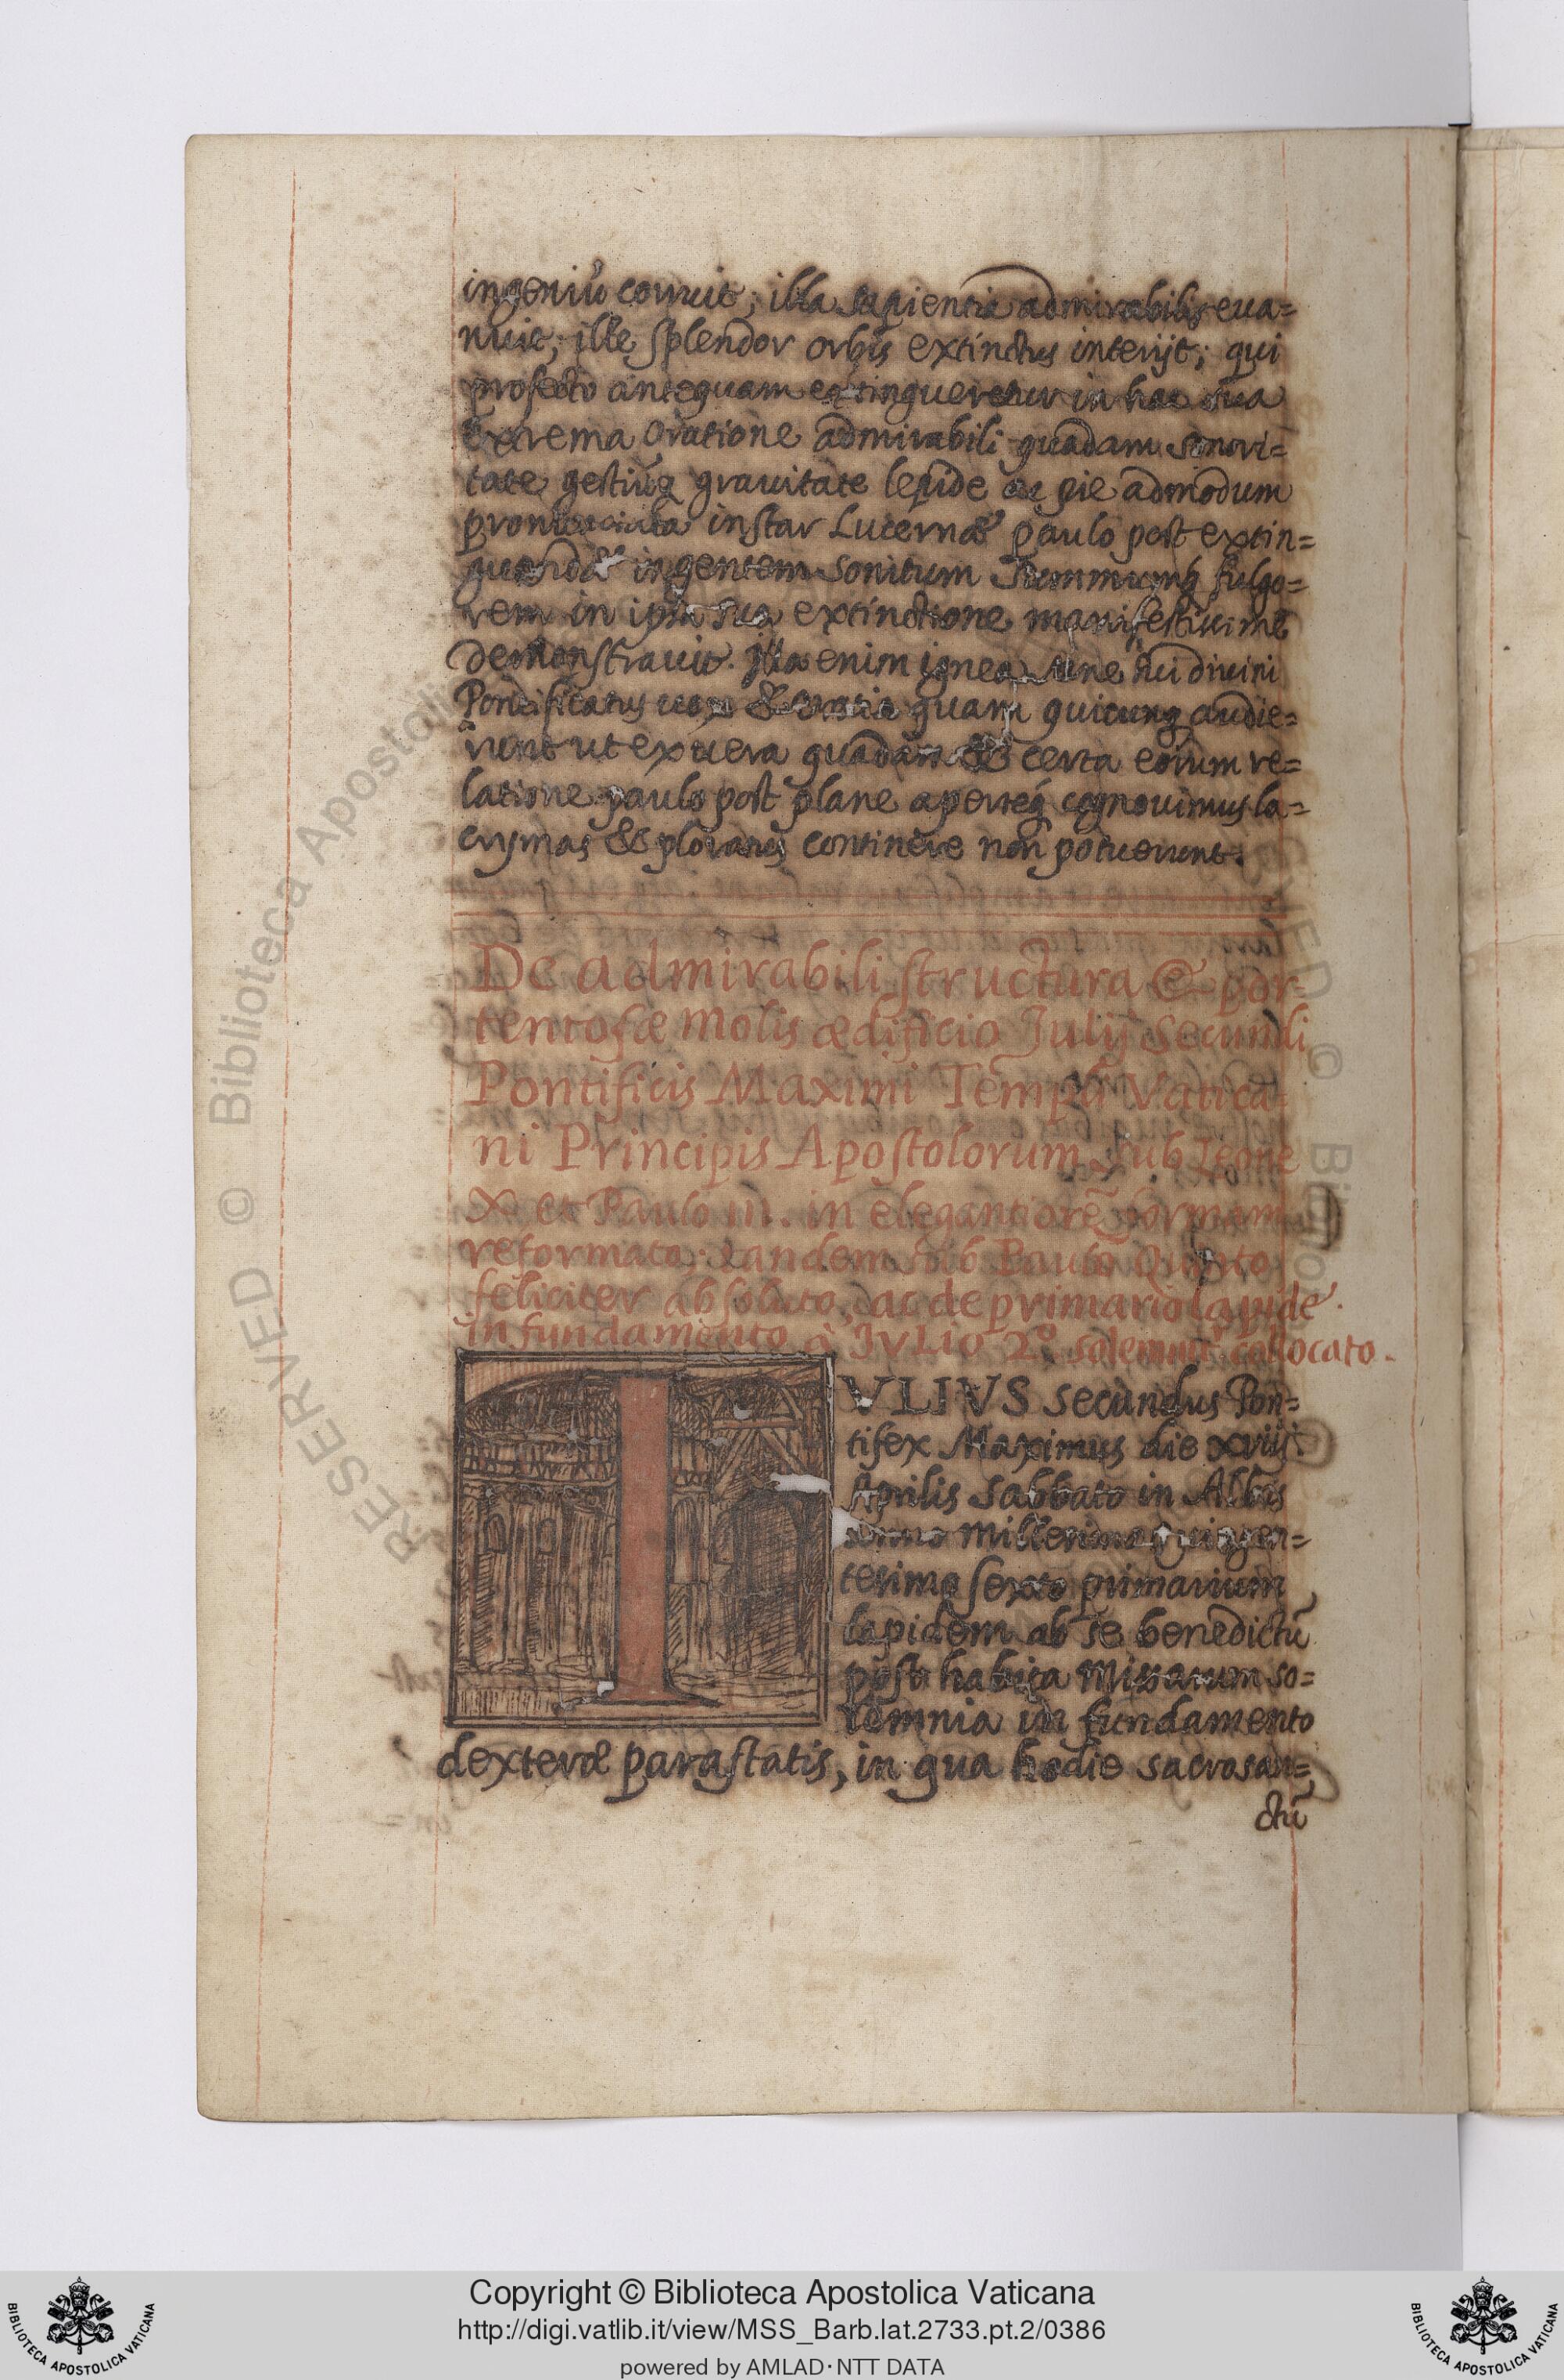 ingeniũ corruit; illa sapientia admirabilis eua=
nuit; ille splendor orbis extinctus interijt; qui
profecto antequam extingueretur in hac sua
extrema oratione admirabili quadam sonori=
tate gestiũq gravitate lepide ac pie admodum
pronunciata instar Lucernæ paulo post extin=
guendæ ingentem sonitum summumq fulgo=
rem in ipsa sua extinctione manifestissime
demonstravit. Illa enim ignea sane divini
Pontificatus vox & oratio quam quicunq audie=
runt ut ex vera quadam & certa eorum re=
latione paulo post plane aperteq cognovimus la=
crymas & ploratus continere non potuerunt.
De admirabili structura & por=
tentosæ molis ædificio Julij Secundi
Pontificis Maximi Templi Vatica=
ni Principis Apostolorum sub Leone
X et Paulo III. in elegantiorẽ formam
reformato; tandem sub Paulo Quinto
feliciter absoluto, ac de primario lapide
in fundamento à JVLIO 2º solemnitr collocato.
IVLIVS secundus Pon=
tifex Maximus die xviij
Aprilis Sabbato in Albis
anno Millesimo quingen=
tesimo sexto primarium
lapidem ab se benedictũ
post habita missarum so=
lemnia in fundamento
dexteræ parastatis, in qua hodie sacrosan=
ctũ
RESERVED © Biblioteca Apostolica
Copyright © Biblioteca Apostolica Vaticana
http://digi.vatlib.it/view/MSS_Barb.lat.2733.pt.2/0386
powered by AMLAD·NTT DATA
BIBLIOTECA APOSTOLICA VATICANA
BIBLIOTECA APOSTOLICA VATICANA